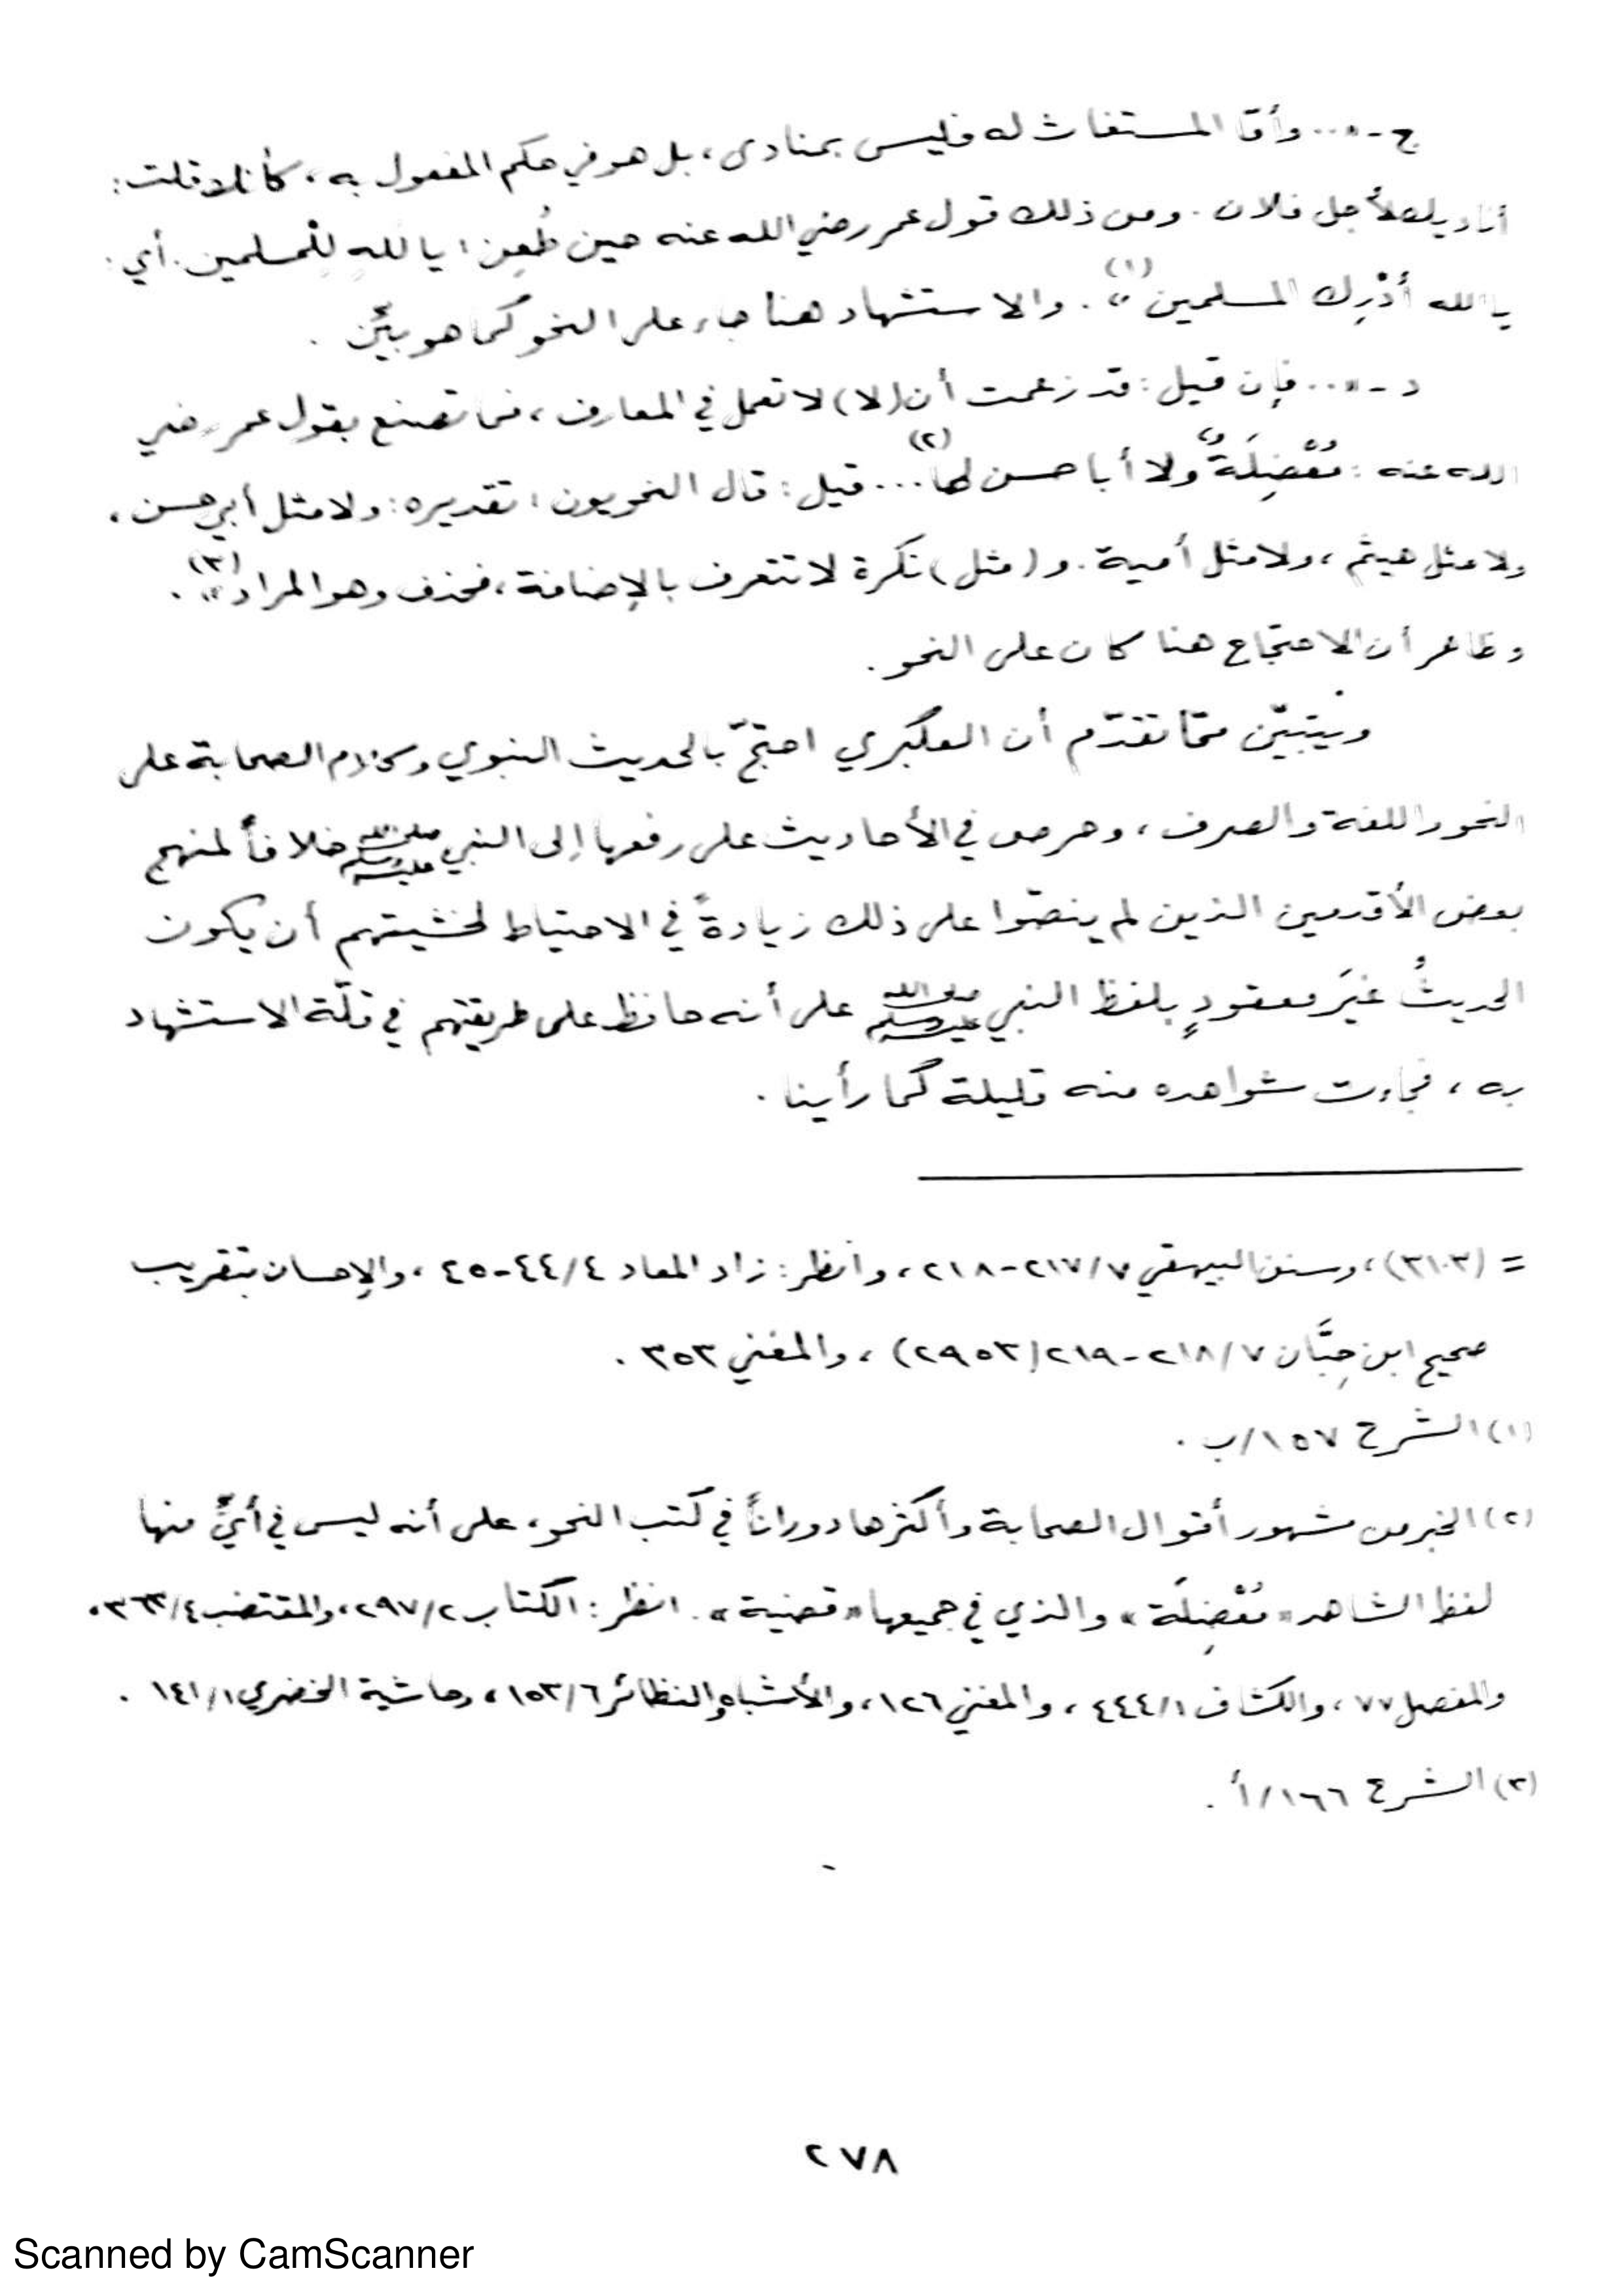 ج - «... وأمّا المستغاث له فليس بمنادى، بل هو في حكم المفعول به، كأنك قلت:
أناديك لأجل فلان. ومن ذلك قول عمر رضي الله عنه حين طُعِن: يا لَلّهِ لِلْمسلمين. أي:
يا الله أدْرِك المسلمين»(١). والاستشهاد هنا جاء على النحو كما هو بيِّن.
د - «... فإن قيل: قد زعمت أن (لا) لا تعمل في المعارف، فما تصنع بقول عمر رضي
الله عنه: مُعْضِلَةٌ ولا أبا حسن لها(٢)... قيل: قال النحويون: تقديره: ولا مثل أبي حسن،
ولا مثل هيثم، ولا مثل أمية. و(مثل) نكرة لا تتعرف بالإضافة، فحذف وهو المراد»(٣).
وظاهر أن الاحتجاج هنا كان على النحو.
ويتبيّن ممّا تقدّم أن العكبري احتجّ بالحديث النبوي وكلام الصحابة على
النحو واللغة والصرف، وحرص في الأحاديث على رفعها إلى النبي صلى الله عليه وسلم خلافاً لمنهج
بعض الأقدمين الذين لم ينصّوا على ذلك زيادةً في الاحتياط لخشيتهم أن يكون
الحديثُ غيَر معقودٍ بلفظ النبي صلى الله عليه وسلم على أنه حافظ على طريقتهم في قلّة الاستشهاد
به، فجاءت شواهده منه قليلة كما رأينا.
= (٣١٠٣)، وسنن البيهقي ٧/٢١٧-٢١٨، وانظر: زاد المعاد ٤/٤٤-٤٥، والإحسان بتقريب
صحيح ابن حِبَّان ٧/٢١٨-٢١٩ (٢٩٥٣)، والمغني ٣٥٣.
(١) الشرح ١٥٧/ب.
(٢) الخبر من مشهور أقوال الصحابة وأكثرها دوراناً في كتب النحو، على أنه ليس في أيٍّ منها
لفظ الشاهد «مُعْضِلَة» والذي في جميعها «قضية». انظر: الكتاب ٢/٢٩٧، والمقتضب ٤/٣٦٣،
والمفصل ٧٧، والكشاف ١/٤٤٤، والمغني ١٢٦، والأشباه والنظائر ٦/١٥٣، وحاشية الخضري ١/١٤١.
(٣) الشرح ١٦٦/أ.
٢٧٨
Scanned by CamScanner